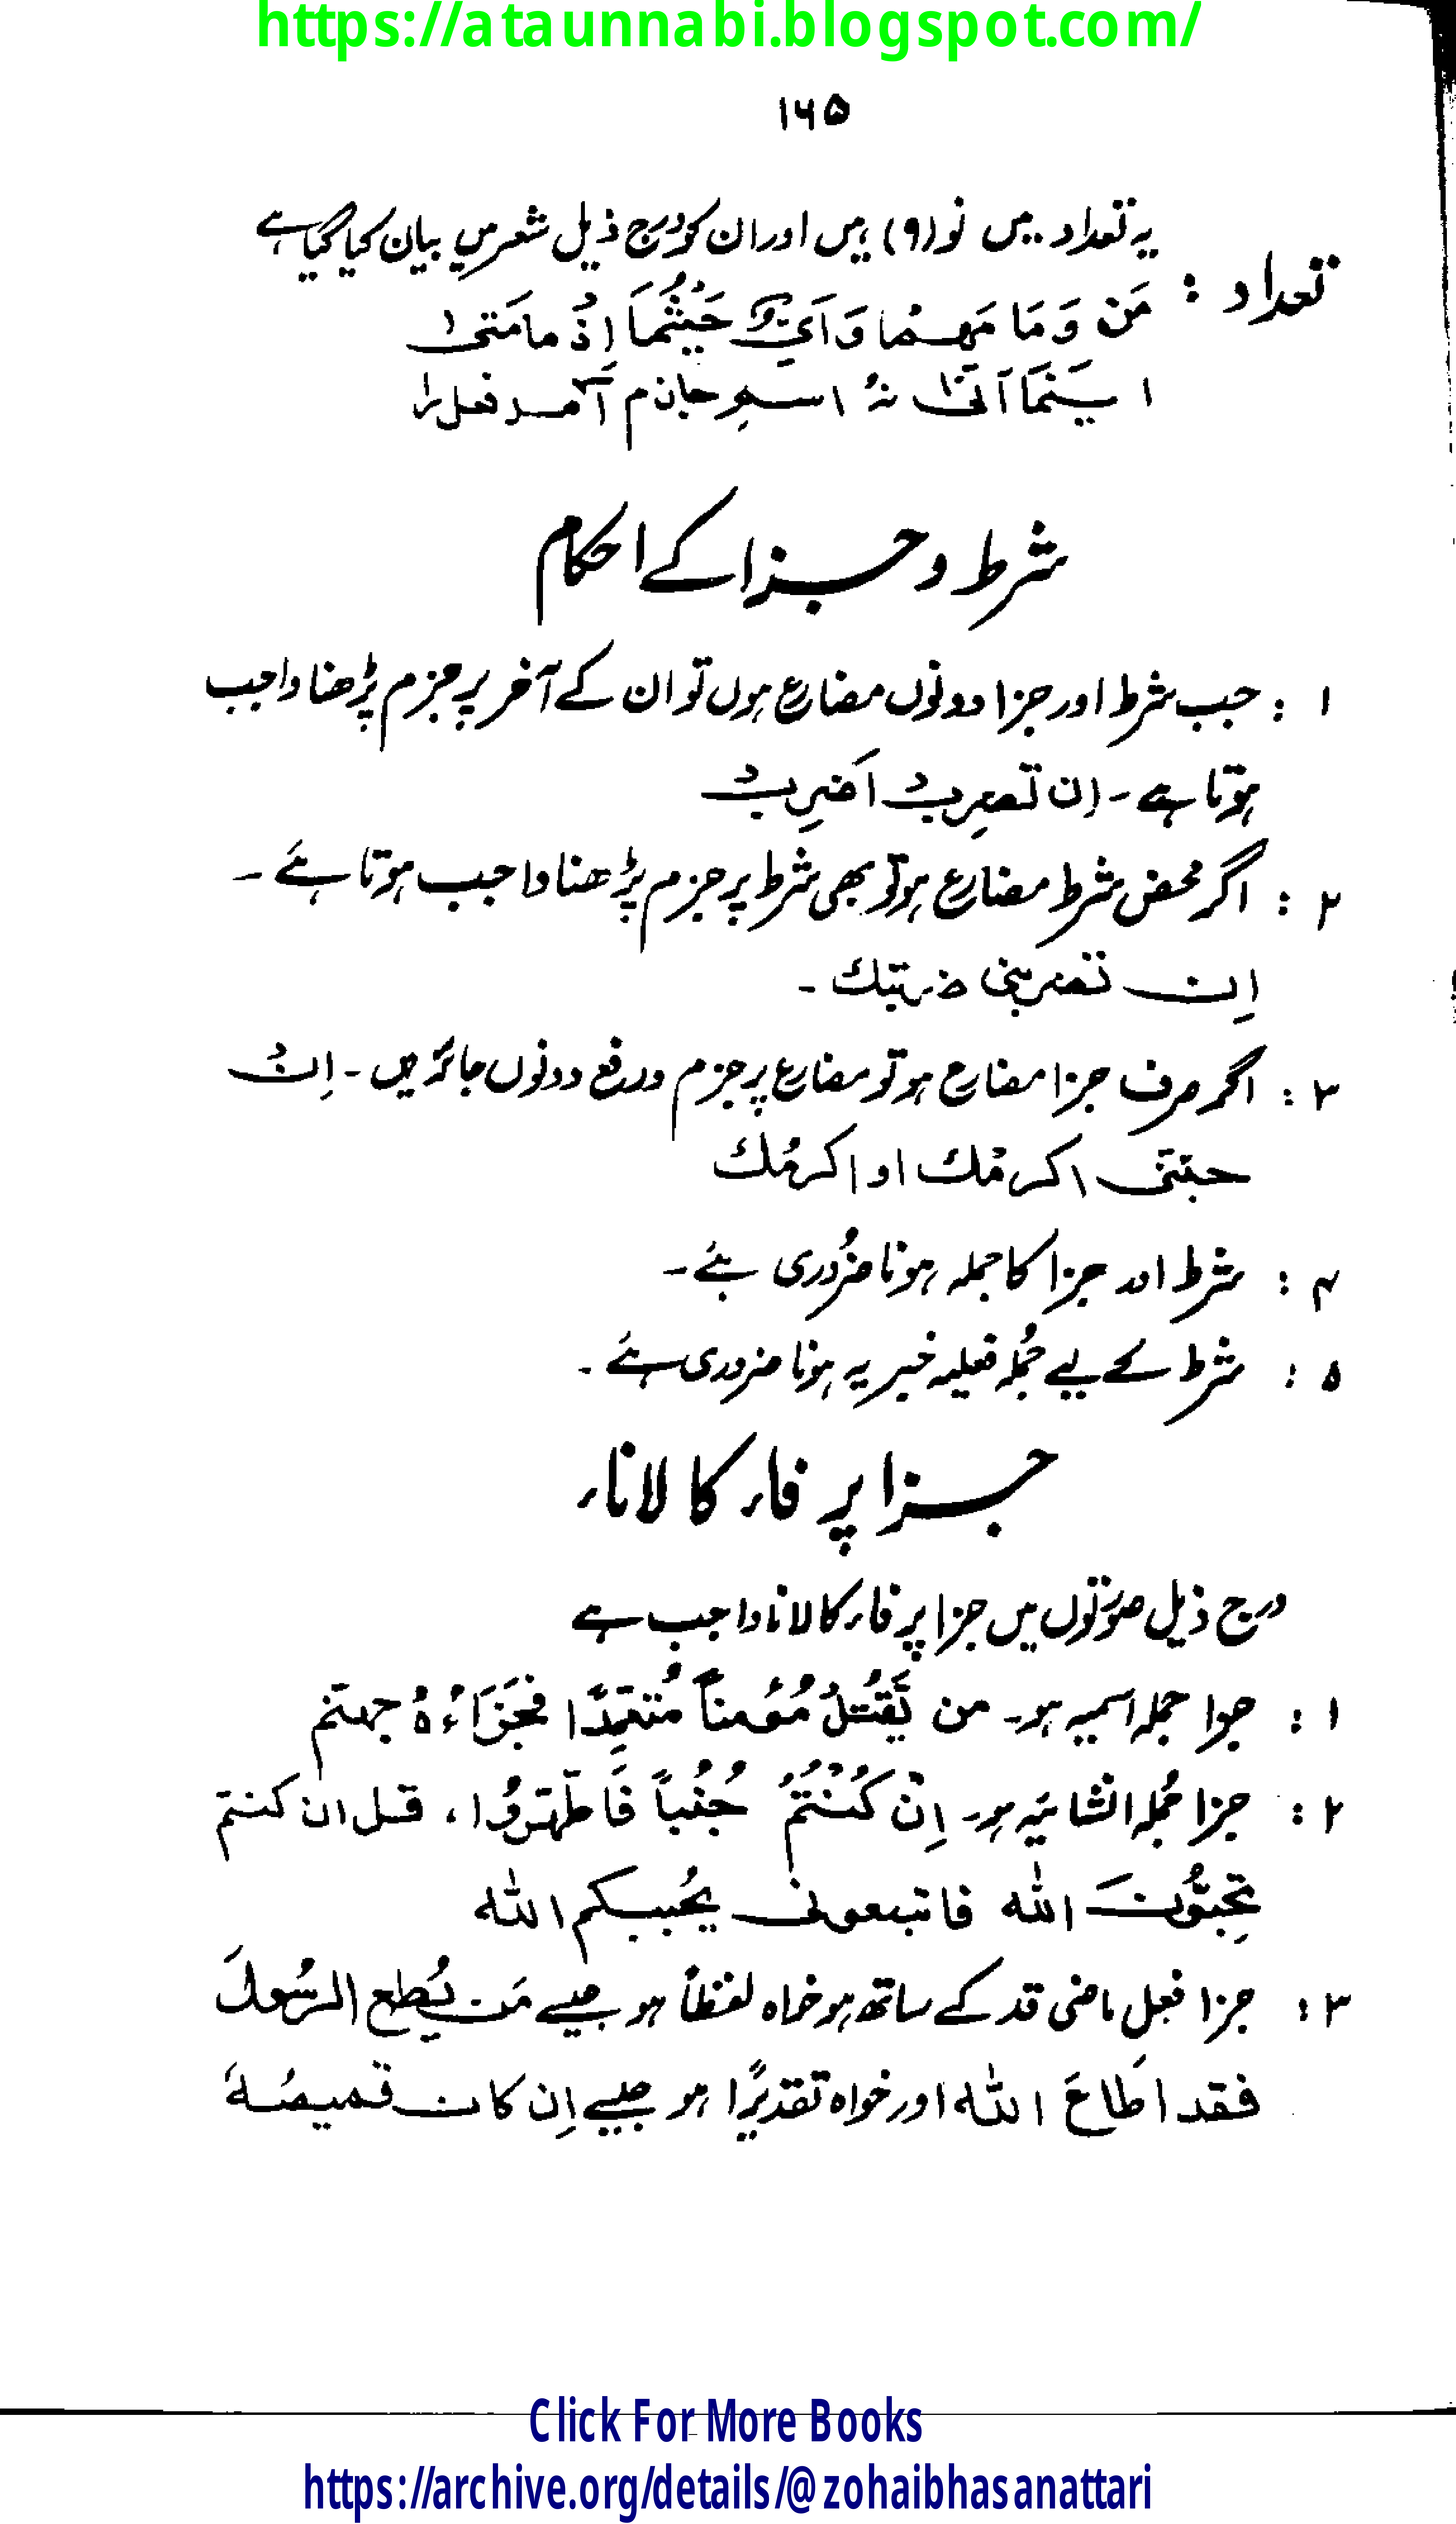 https://ataunnabi.blogspot.com/
۱۶۵
یہ تعداد میں نو (۹) ہیں اور ان کو درج ذیل شعر میں بیان کیا گیا ہے
تعداد :
مَن وَ مَا مَهمَا وَ اَیّ حَیْثُمَا اِذْ ما مَتیٰ
اینَمَا اَنّٰی نہُ اسم جازم آمد فعل را
شرط و جزا کے احکام
۱ : جب شرط اور جزا دونوں مضارع ہوں تو ان کے آخر پر جزم پڑھنا واجب
ہوتا ہے ۔ اِن تَضرِبْ اَضرِبْ
۲ : اگر محض شرط مضارع ہو تو بھی شرط پر جزم پڑھنا واجب ہوتا ہے ۔
اِن تضربنی ضربتك ۔
۳ : اگر صرف جزا مضارع ہو تو مضارع پر جزم ورفع دونوں جائز ہیں ۔ اِنْ
جئتنی اکرمْك او اکرمُك
۴ : شرط اور جزا کا جملہ ہونا ضرُوری ہے ۔
۵ : شرط کے لیے جُملہ فعلیہ خبریہ ہونا ضروری ہے ۔
جزا پر فاء کا لانا ء
درج ذیل صورتوں میں جزا پر فاء کا لانا واجب ہے
۱ : جزا جملہ اسمیہ ہو ۔ من یَّقْتُلْ مُؤمناً مُتَعَمِّدًا فَجَزَاءُہُ جهنّم
۲ : جزا جُملہ انشائیہ ہو ۔ اِنْ كُنْتُمْ جُنُباً فَاطّهّرُوا ، قل ان كنتم
تُحِبُّونَ الله فاتبعونی یُحببكم الله
۳ : جزا فعل ماضی قد کے ساتھ ہو خواہ لفظاً ہو جیسے مَن یُطِع الرسُولَ
فقد اطَاعَ الله اور خواہ تقدیرًا ہو جیسے اِن كان قمیصُهٗ
Click For More Books
https://archive.org/details/@zohaibhasanattari